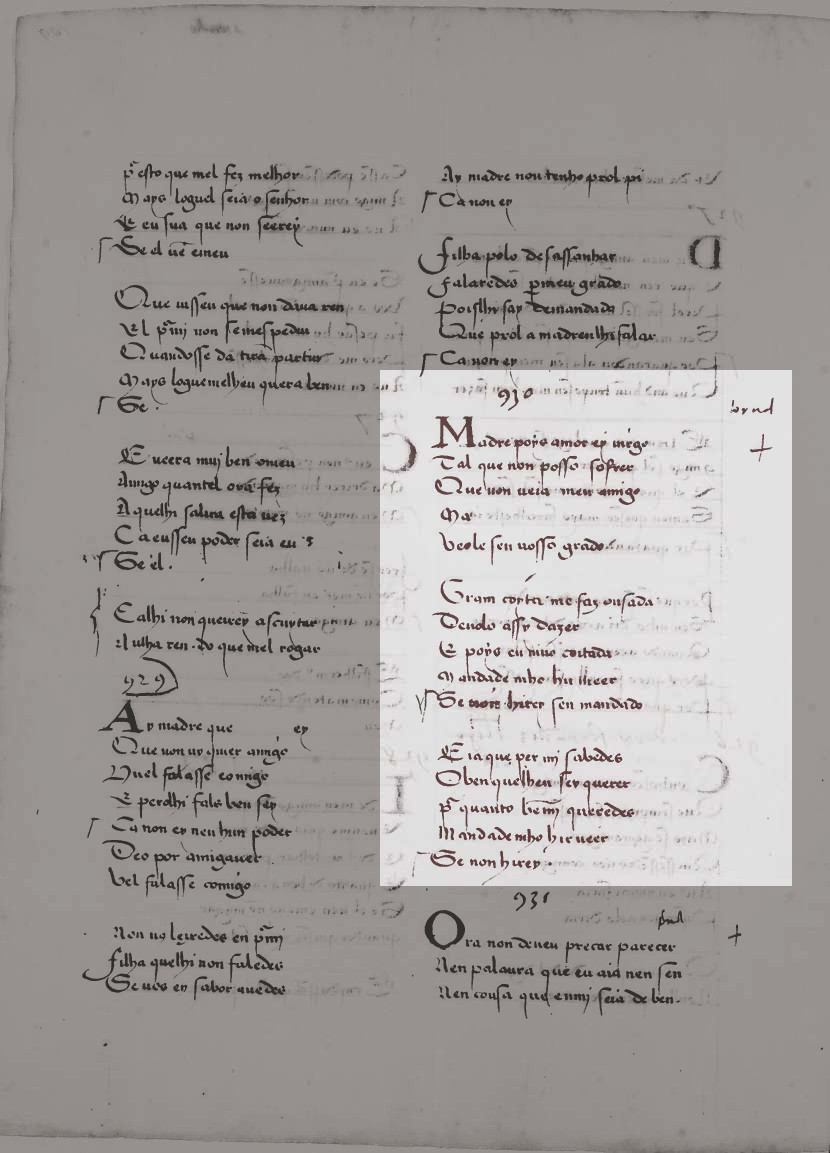 p̃ esto que mel fez melhor
Mays loguel seia o senhor
E eu sua que non seerey
Se el ue᷉ emeu
Que uisseu que non daua ren
El p̃mi non se me spediu
Quandosse da tira partir
Mays loguemelheu quera ben
Se .
E ueera muj ben o meu
Amigo quantel ora fez
A quelhi salua esta uez
Ca eusseu poder seia eu
Se el .
E alhi non queirey ascuytar
Nulha ren do que mel rogar
929
Ay madre que ey
Que non uy quier amigo
Nuel falasse comigo
E perdlhi fals ben sey
Ca non ey neu hun poder
Deo por amigauer
Vel falasse comigo
Non uo leixedes en p̃mj
filha quelhi non faledes
Se uos en sabor auedes
Ay madre non tenho prol pi
Ca non ey
filha polo desassanhar
falaredes per meu grado
Poislhi fay demandado
Que prol a madrenlhi falar
Ca non ey
930
Madre poys amor ey migo
Tal que non posso sofrer
Que non ueia meu amigo
Ma
Veole sen uosso grado
Gram coyta me faz ousada
Deuolo assy dizer
E poys eu uiuo coitada
Mandade mho hir ueer
Se non hirey sen mandado
E ia que per mi sabedes
O ben quelheu sey querer
p̃ quanto ben mj queredes
Mandade mho hir ueer
Se non hirey .
931
Ora non deueu preçar parecer
Nen palaura que eu aia nen sen
Nen cousa que en mj seia de ben .